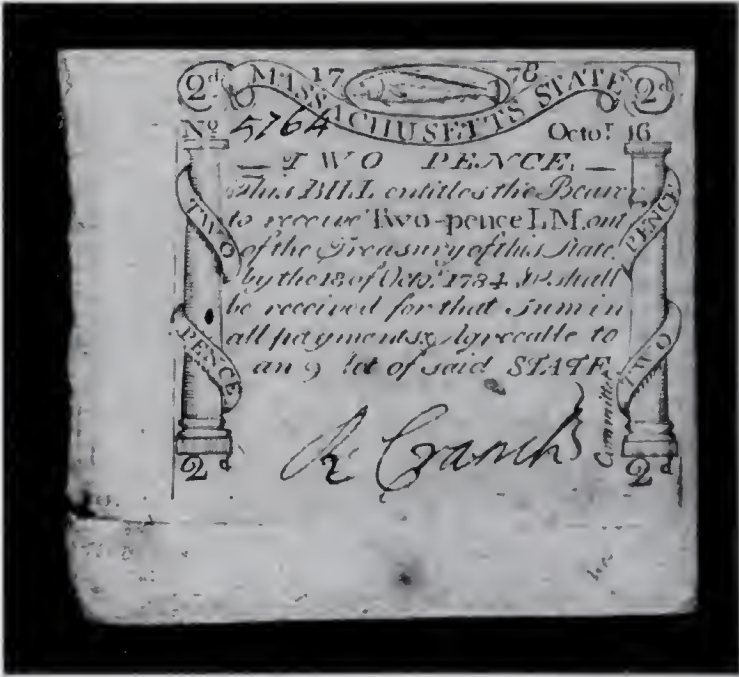 2d 17 78 2d
MASSACHUSETTS STATE
No 5764 Octor 16
TWO PENCE.
This BILL entitles the Bearer
to receive Two-pence L.M. out
of the Treasury of this State.
by the 18 of Octr. 1784 & shall
be received for that Sum in
all payments, Agreeable to
an Act of said STATE
R Cranch } Committee
TWO
PENCE
PENCE
TWO
2d 2d